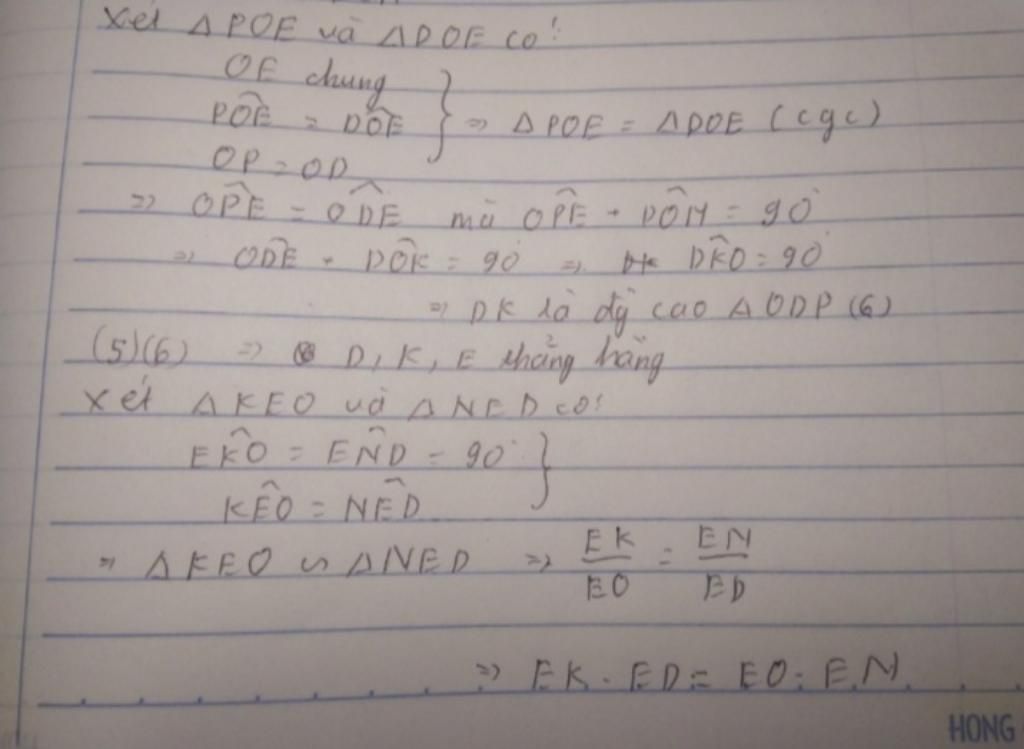 Xét Δ POE và Δ DOE có:
OE chung
PÔE = DÔE } => Δ POE = Δ DOE (cgc)
OP = OD
=> OP̂E = OD̂E mà OP̂E + DÔM = 90°
=> OD̂E + DÔK = 90° => DK̂O = 90°
=> DK là đg cao Δ ODP (6)
(5)(6) => D, K, E thẳng hàng
Xét Δ KEO và Δ NED có:
EK̂O = EN̂D = 90° }
KÊO = NÊD
=> Δ KEO ∽ Δ NED => EK/EO = EN/ED
=> EK . ED = EO . EN.
HONG